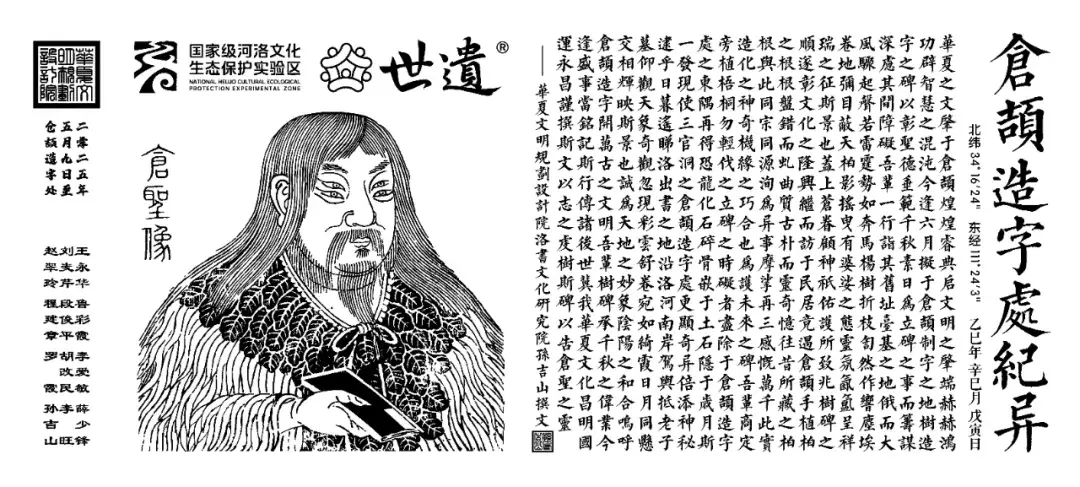 倉頡造字處紀异
北纬34°16′24″ 东经111°24′3″ 乙巳年 辛巳月 戊寅日
華夏之文肇于倉頡煌煌睿典启文明之肇端赫赫鴻
功辟智慧之混沌今逢六月擬于倉頡制字之地樹造
字之碑以彰聖德垂範千秋素日為立碑之事而籌謀
深慮其間障礙吾輩一行詣其舊址臺基之地俄而大
風驟起聲若雷霆勢如奔馬楊樹折枝訇然作響塵埃
卷地彌目蔽天柏影搖曳有婆娑之態靈氛氤氳呈祥
瑞之征斯景也蓋上蒼眷顧神祇佑護所致兆樹碑之
順遂彰文化之隆興繼而訪于民居竟遇倉頡手植柏
之根根盤錯而虬曲質古朴而靈奇憶往昔所藏之柏
根與此同宗同源洵為异事摩挲再三感慨萬千此實
造化之神奇機緣之巧合也為護未來之碑吾輩商定
旁植梧桐勿輕伐之立碑之時礙者盡除于倉頡造字
處之東隅再得恐龍化石碎骨嵌于土石隱于歲月斯
一發現使三官洞之倉頡造字處更顯奇异倍添神秘
逮乎日暮遙睇洛出書之地沿洛河南岸駕輿抵老子
墓仰觀天象奇觀忽現彩雲舒卷宛如綺霞日月同懸
交相輝映斯景也誠為天地之妙象陰陽之和合嗚呼
倉頡造字開萬古之文明吾輩樹碑承千秋之偉業今
逢盛事當銘記斯行傳諸後世冀我華夏文化昌明國
運永昌謹撰斯文以志之虔樹斯碑以告倉聖之靈
——華夏文明規劃設計院洛書文化研究院孫吉山撰文
世遺®
国家级河洛文化
生态保护实验区
NATIONAL HELUO CULTURAL ECOLOGICAL
PROTECTION EXPERIMENTAL ZONE
倉聖像
華夏文明規劃設計院
二零二五年
五月九日至
倉頡造字处
王永华 鲁彩霞 李爱敏 薛少锋
刘夫芹 段俊平 胡改民 李旺
赵翠玲 程建章 罗霞 孙吉山